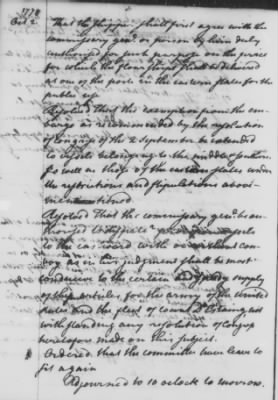 1778
Oct 2
That the shipper shall first agree with the
commissary genl or person by him duly
authorized for such purpose on the price
for which the flour shall be delivered
at one of the ports in the eastern states for the
public use
Resolved That the exemption from the em
bargo as recommended by the resolution
of Congress of the 2 September be extended
to vessels belonging to the middle & southern
as well as those of the eastern states under
the restrictions and stipulations above
mentioned.
Resolved That the commissary genl be au
thorized to
to the eastward with or without con
voy as in his judgment shall be most
conducive to the certain and speedy supply
of such articles for the army of the united
states and the fleet of count D'Estaing, not
withstanding any resolution of Congress
heretofore made on this subject.
Ordered That the committee have leave to
sit again
Adjourned to 10 oClock to morrow.